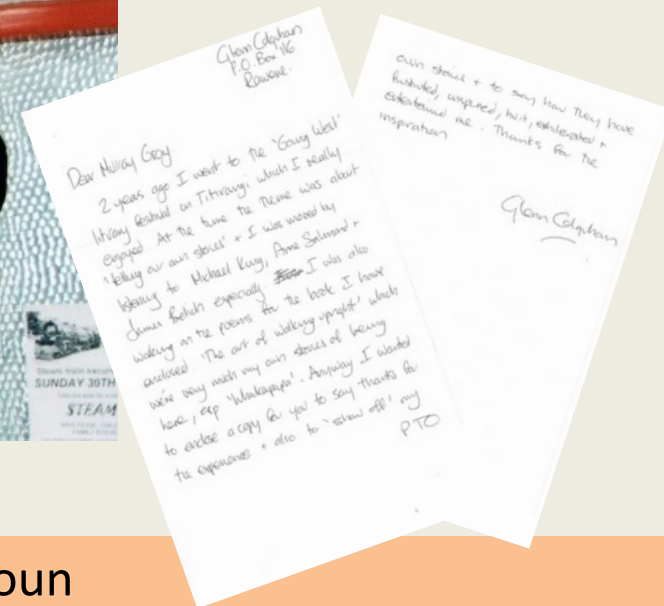 Glenn Colquhoun
P.O. Box 116
Rawene.
Dear Murray Gray
2 years ago I went to the 'Going West'
literary festival in Titirangi which I really
enjoyed. At the time the theme was about
'telling our own stories' + I was moved by
listening to Michael King, Anne Salmond +
James Belich especially. I was also
working on the poems for the book I have
enclosed 'The art of walking upright' which
were very much my own stories of being
here, esp 'Whakapapa'. Anyway I wanted
to enclose a copy for you to say thanks for
the experience + also to 'show off' my
PTO
own stories + to say how they have
frustrated, inspired, hurt, exhilerated +
entertained me. Thanks for the
inspiration
Glenn Colquhoun
Steam train
SUNDAY 30TH
STEAM
oun